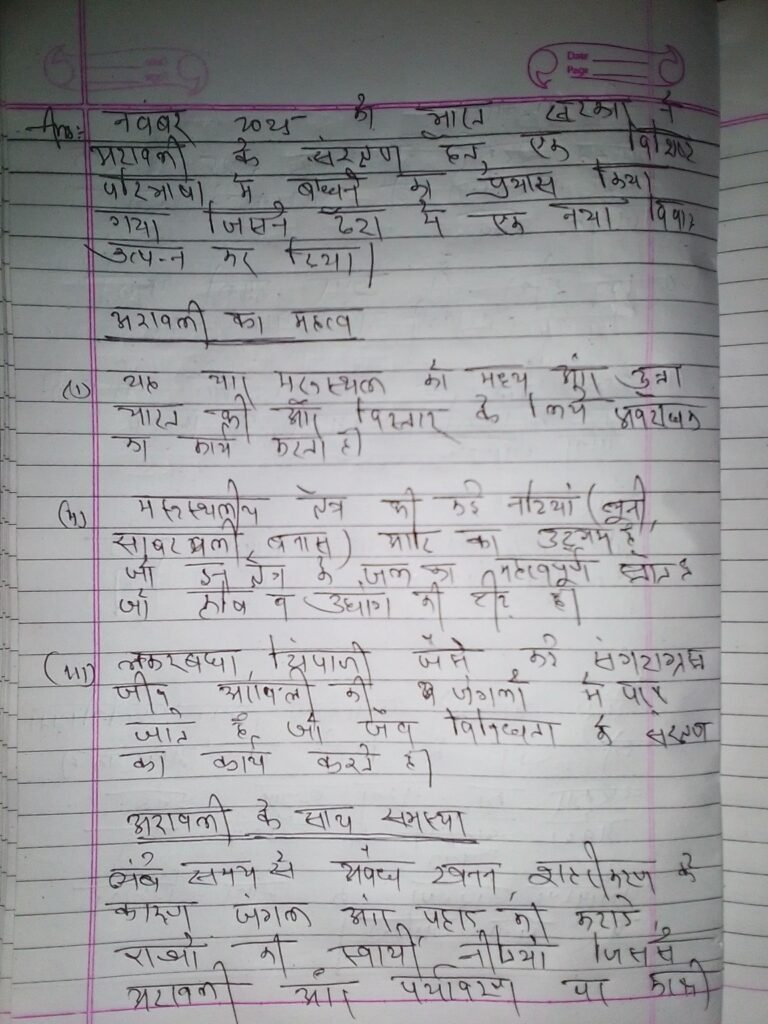 Date
Page
Ans: नवंबर 2025 को भारत सरकार ने
अरावली के संरक्षण हेतु एक विशिष्ट
परिभाषा में बांधने का प्रयास किया
गया जिसने देश में एक नया विवाद
उत्पन्न कर दिया।
अरावली का महत्व
(i) यह थार मरुस्थल को मध्य और उत्तर
भारत की ओर विस्तार के लिये अवरोधक
का कार्य करता है।
(ii) मरुस्थलीय क्षेत्र की कई नदियां (लूनी,
साबरमती, बनास) आदि का उद्गम है,
जो इन क्षेत्र के जल का महत्वपूर्ण स्रोत है
जो कृषि व उद्योग की है।
(iii) लकड़बग्घा, जैसे की
जीव की जंगलों में पाए
जाते है, जो जैव विविधता के संरक्षण
का कार्य करते है।
अरावली के साथ समस्या
लंबे समय से अवैध खनन, शहरीकरण के
कारण जंगल और पहाड़ की कटाई,
राज्यों की स्वार्थी नीतियां जिससे
अरावली और पर्यावरण पर काफी